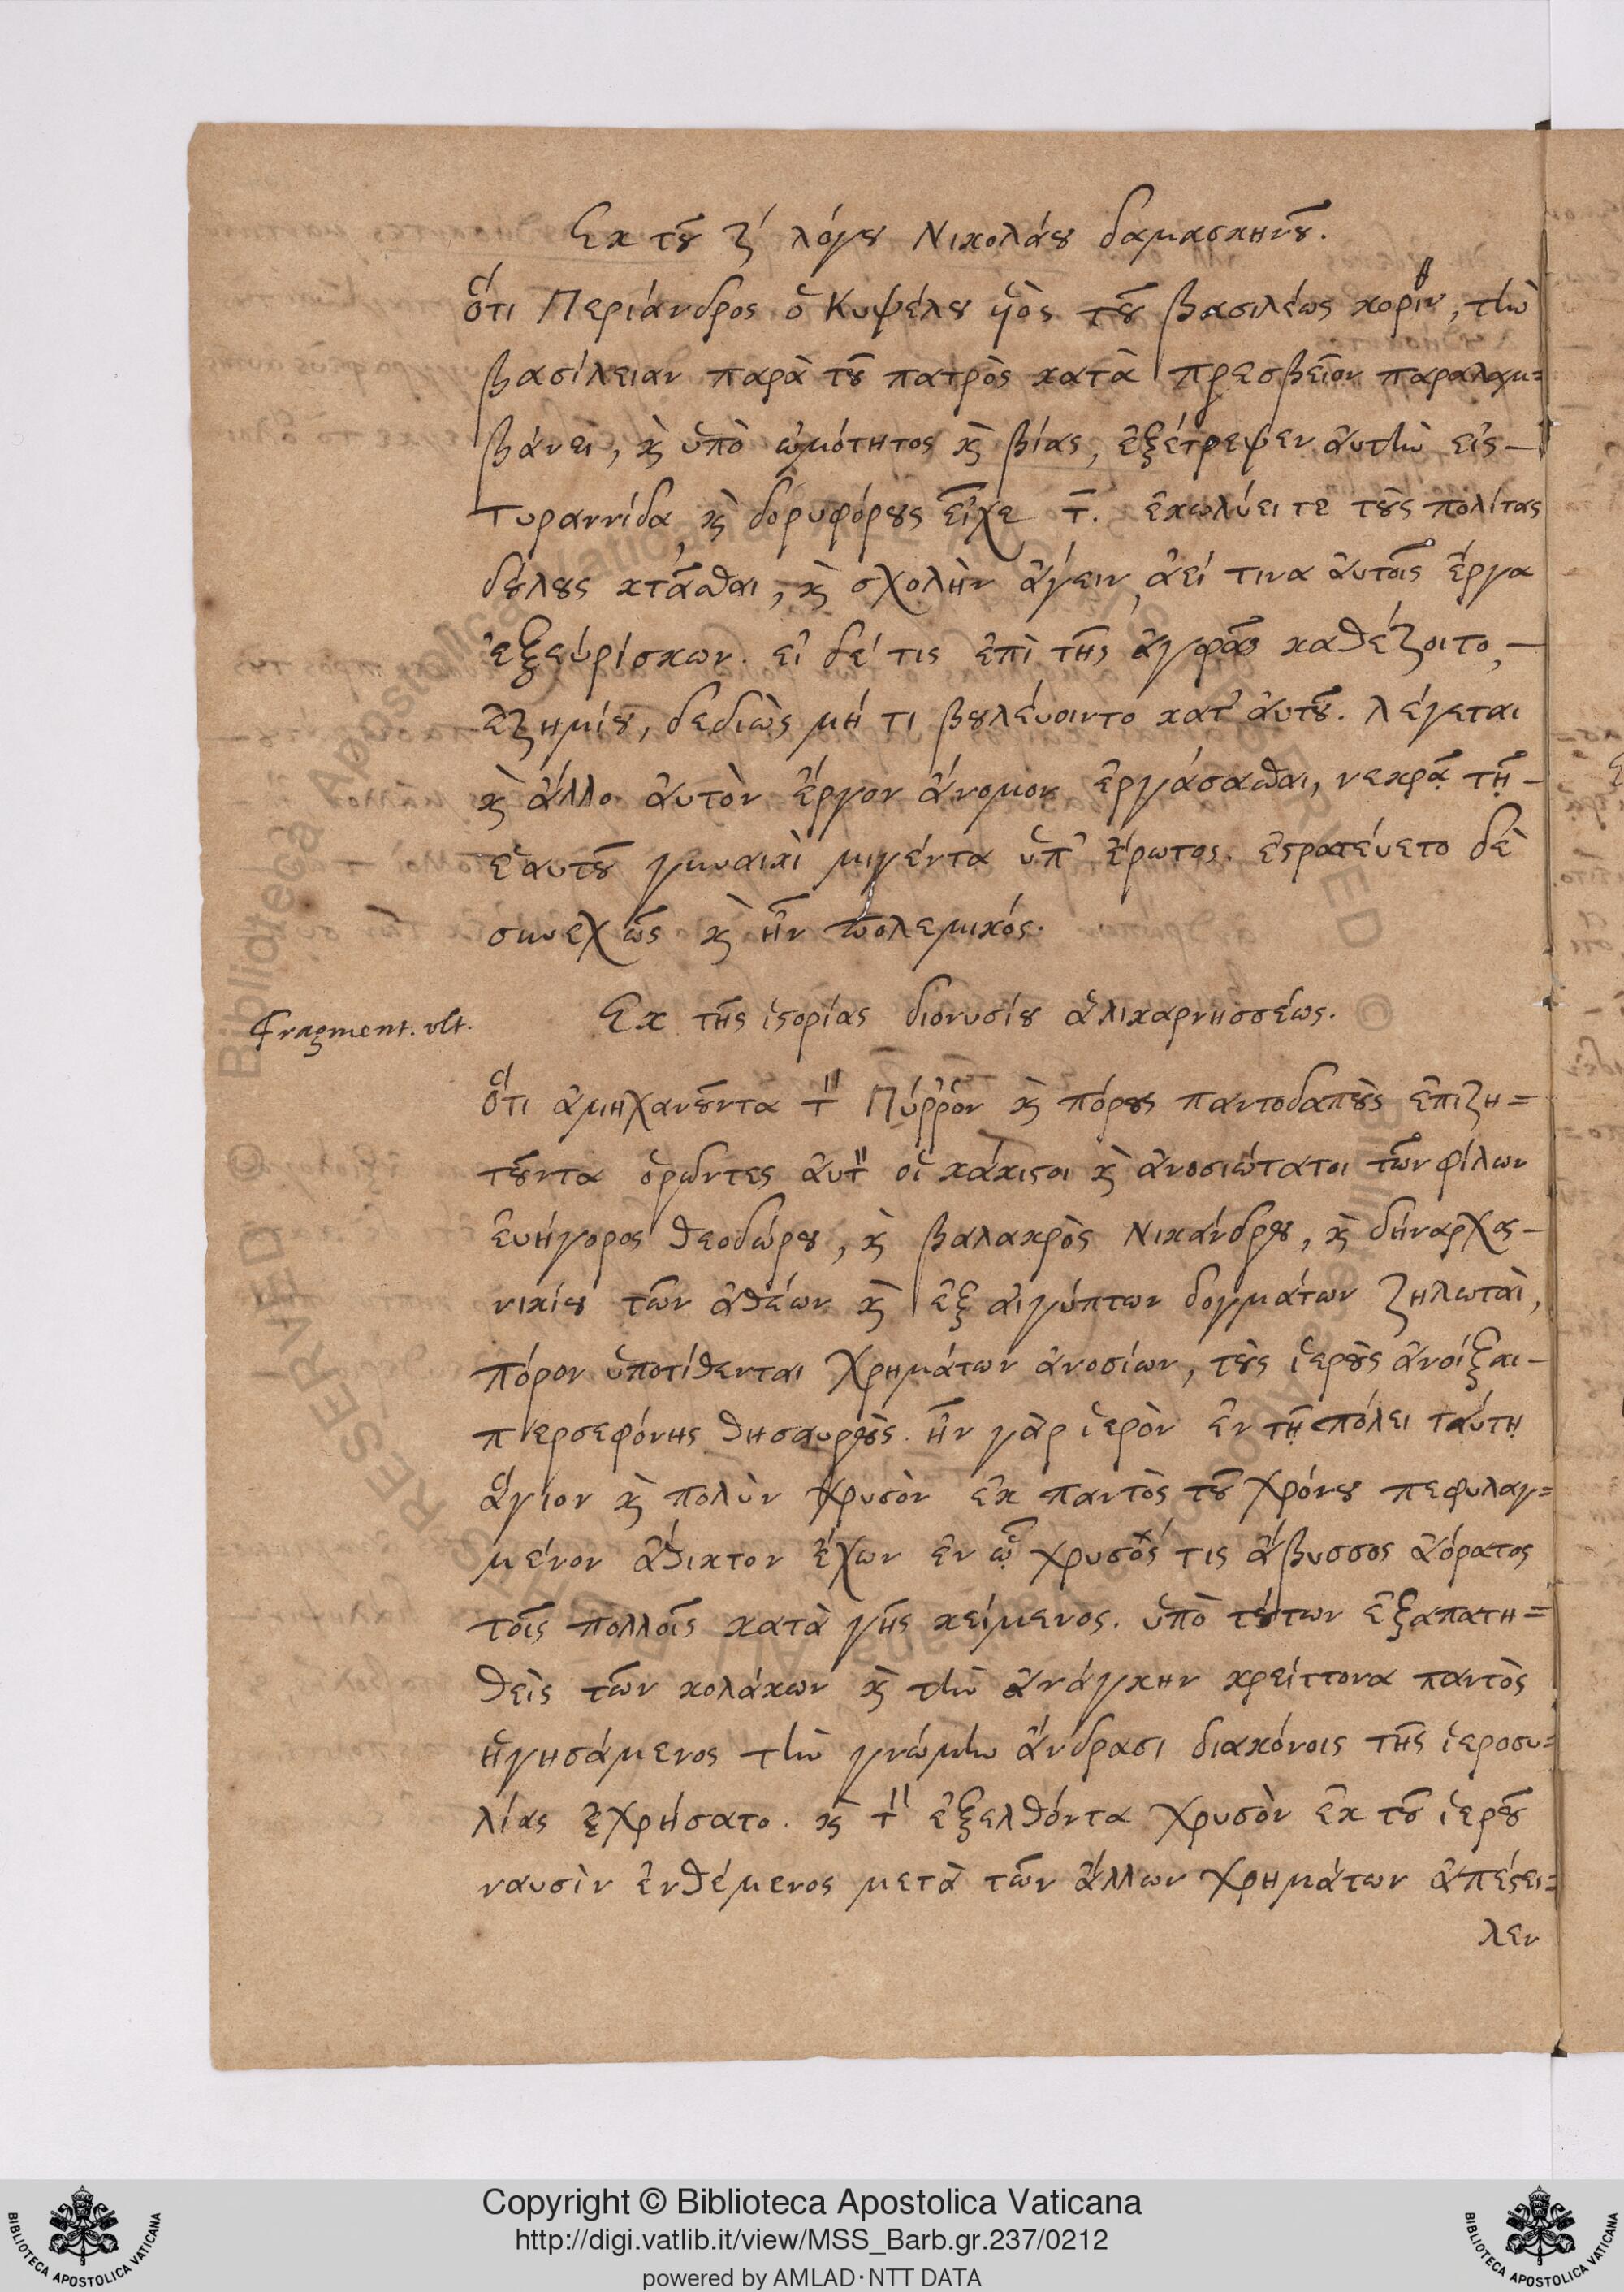 Ἐκ τοῦ ζ´ λόγου Νικολάου δαμασκηνοῦ.
ὅτι Περίανδρος ὁ Κυψέλου ὑὸς τοῦ βασιλέως κορίνθ, τὴν
βασίλειαν παρὰ τοῦ πατρὸς κατὰ πρεσβεῖον παραλαμ=
βάνει, καὶ ὑπὸ ὠμότητος καὶ βίας, ἐξέτρεψεν αὐτὴν εἰς –
τυραννίδα, καὶ δορυφόρους εἶχε τ̅. ἐκωλύει τε τοὺς πολίτας
δούλους κτᾶσθαι, καὶ σχολὴν ἄγειν, ἀεί τινα αὐτοῖς ἔργα
ἐξευρίσκων. εἰ δέ τις ἐπὶ τῆς ἀγορᾶς καθέζοιτο, –
ἐζημίου, δεδιὼς μή τι βουλεύοιντο κατ' αὐτοῦ. λέγεται
καὶ ἄλλο αὐτὸν ἔργον ἄνομον ἐργάσασθαι, νεκρᾷ τῇ –
ἑαυτοῦ γυναικὶ μιγέντα ὑπ' ἔρωτος. ἐστρατεύετο δὲ
συνεχῶς καὶ ἦν πολεμικός.
Fragment. vlt.
Ἐκ τῆς ἱστορίας διονυσίου ἁλικαρνησσέως.
ὅτι ἀμηχανοῦντα τὸν Πύῤῥον καὶ πόρους παντοδαποὺς ἐπιζη=
τοῦντα ὁρῶντες αὐτὸν οἱ κάκιστοι καὶ ἀνοσιώτατοι τῶν φίλων
ἐυήγορος θεοδώρου, καὶ βαλακρὸς Νικάνδρου, καὶ δήναρχος –
νικίου τῶν ἀθέων καὶ ἐξ αἰγύπτων δογμάτων ζηλωταὶ,
πόρον ὑποτίθενται χρημάτων ἀνοσίων, τοὺς ἱεροὺς ἀνοίξαι –
περσεφόνης θησαυροὺς. ἦν γὰρ ἱερὸν ἐν τῇ πόλει ταύτῃ
ἅγιον καὶ πολὺν χρυσὸν ἐκ παντὸς τοῦ χρόνου πεφυλαγ=
μένον ἄθικτον ἔχων ἐν ᾧ χρυσός τις ἄβυσσος ἀόρατος
τοῖς πολλοῖς κατὰ γῆς κείμενος. ὑπὸ τούτων ἐξαπατη=
θεὶς τῶν κολάκων καὶ τὴν ἀνάγκην κρείττονα παντὸς
ἡγησάμενος τὴν γνώμην ἄνδρασι διακόνοις τῆς ἱεροσυ=
λίας ἐχρήσατο. καὶ τὸν ἐξελθόντα χρυσὸν ἐκ τοῦ ἱεροῦ
ναυσὶν ἐνθέμενος μετὰ τῶν ἄλλων χρημάτων ἀπέστει=
λεν
Copyright © Biblioteca Apostolica Vaticana
http://digi.vatlib.it/view/MSS_Barb.gr.237/0212
powered by AMLAD·NTT DATA